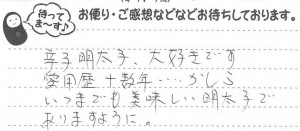 待ってま〜す♪
お便り・ご感想などなどお待ちしております。
辛子明太子、大好きです
愛用歴十数年……かしら
いつまでも美味しい明太子で
ありますように。